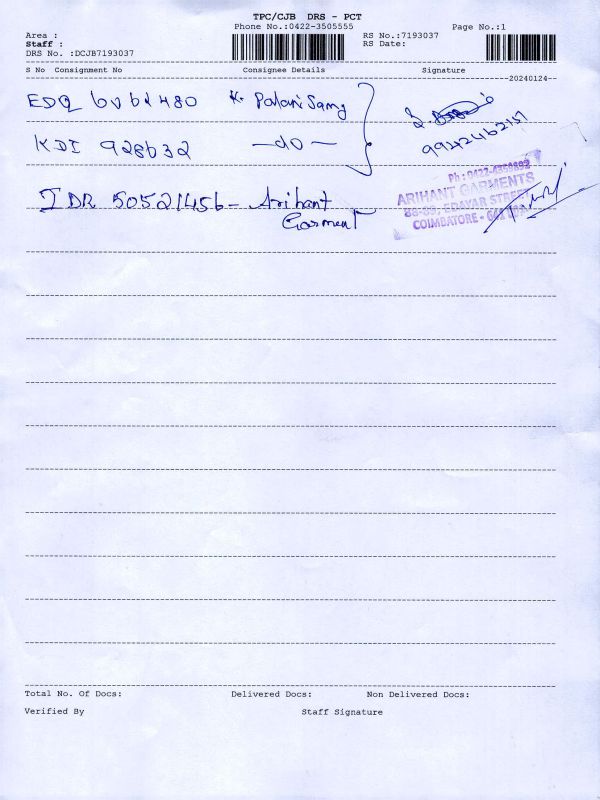 TPC/CJB DRS - PCT
Phone No.:0422-3505555
Page No.:1
Area :
RS No.:7193037
Staff :
RS Date:
DRS No. :DCJB7193037
S No Consignment No Consignee Details Signature
20240124
EDQ 6062480 K. Palanisamy
KDI 928632 —do—
9942462157
IDR 50521456 - Arihant
Garment
Ph : 0422-4359892
ARIHANT GARMENTS
EDAYAR STREET
COIMBATORE -
Total No. Of Docs: Delivered Docs: Non Delivered Docs:
Verified By Staff Signature